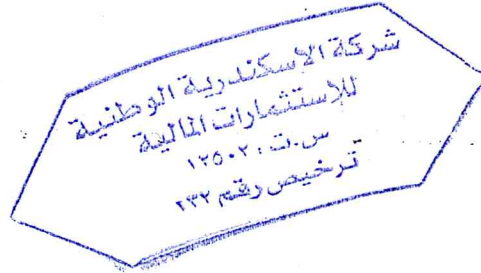 شركة الاسكندرية الوطنية
للاستثمارات المالية
س.ت: ١٢٥٠٢
ترخيص رقم ٢٣٢